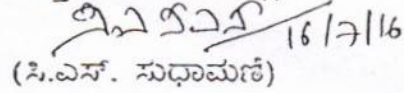 16/7/16
(ಸಿ.ಎಸ್. ಸುಧಾಮಣಿ)